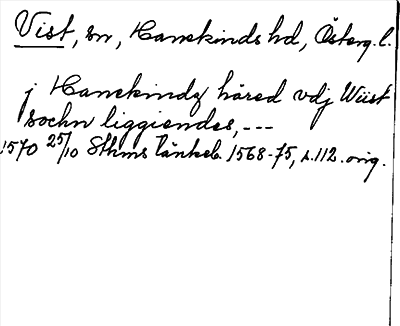 Vist, sn, Hanekinds hd, Österg. l.
j Hanekindz häred vdj Wiist
sochn liggiendes, ---
1570 25/10 Sthms tänkeb. 1568-75, s. 112. orig.